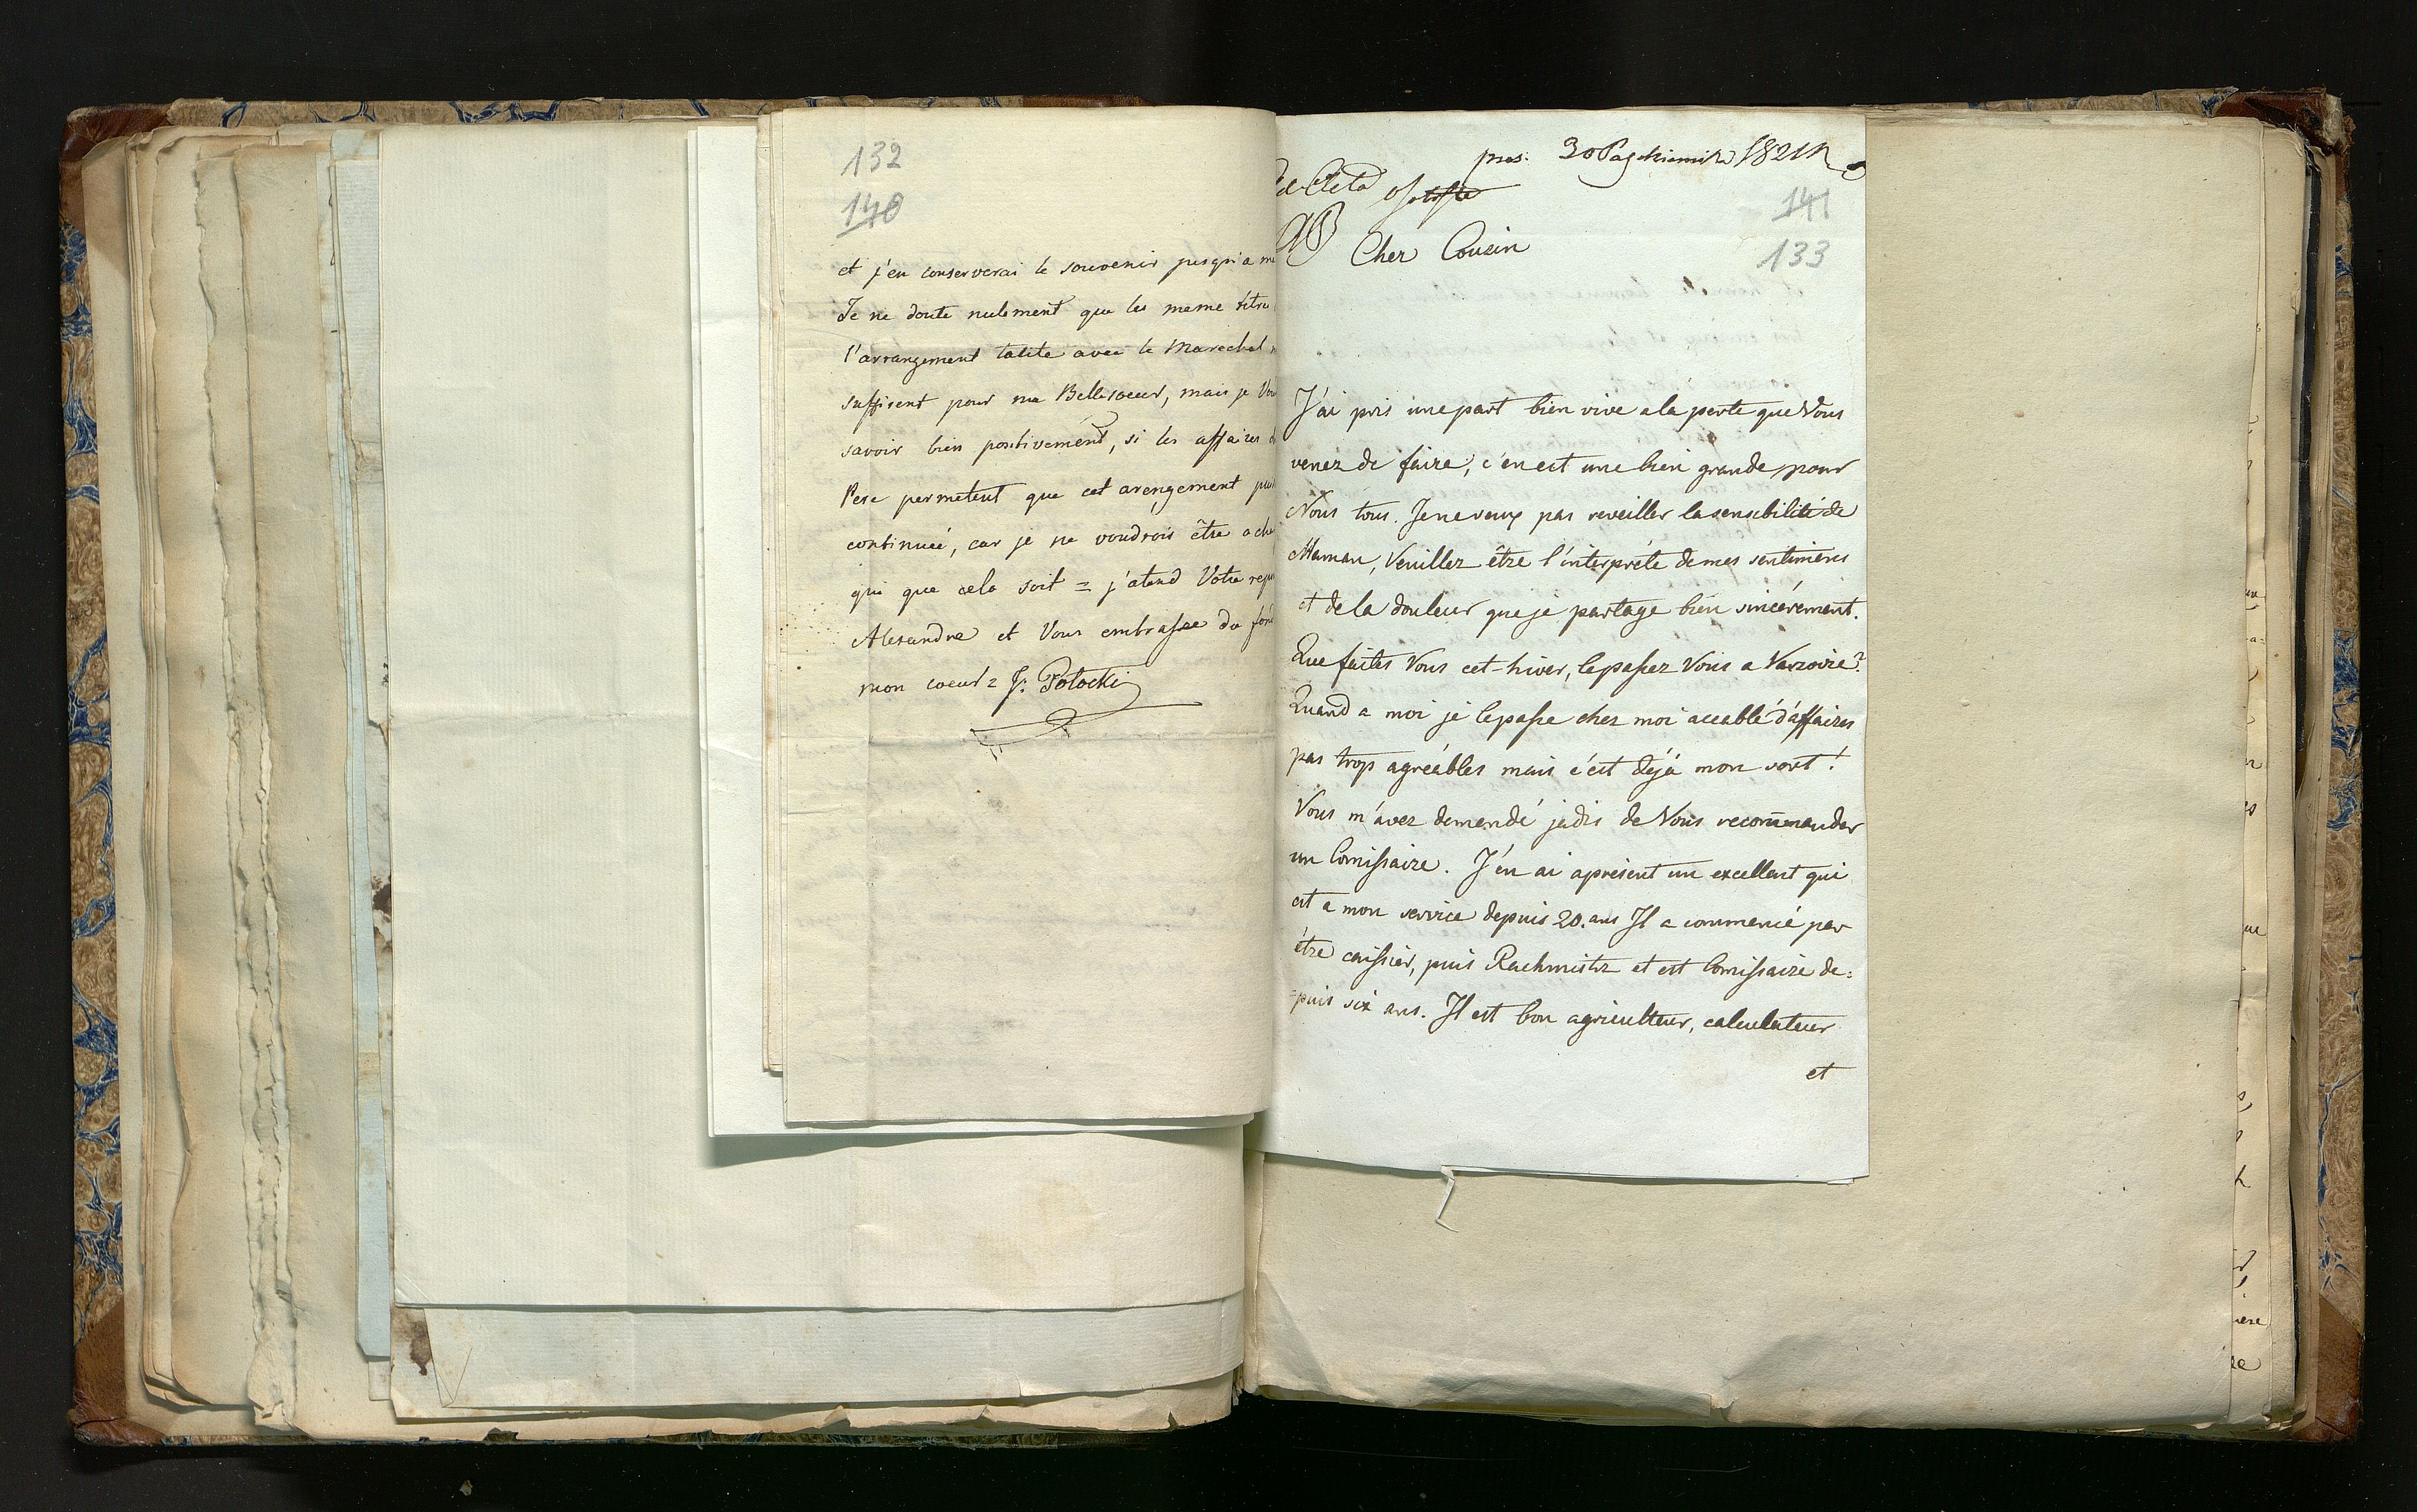 132
140
et j'en conserverai le souvenir jusqu'a m
Je ne doute nulement que les meme titre
l'arrangement tatite avec le Marechal
suffisent pour ma Bellesoeur, mais je Vou
savoir bien positivement, si les affaires d
Pere permetent que cet arengement pui
continuée, car je ne voudrois être a cha
qui que cela soit = j'atend Votre repo
Alexandre et Vous embrasse du fond
mon coeur = J. Potocki
pres. 30 Pazdziernika 1821 R
141
133
Cher Cousin
J'ai pris une part bien vive a la perte que Vous
venez de faire, c'en est une bien grande pour
Nous tous. Je ne veux pas reveiller la sensibilité de
Maman, Veuillez être l'interpréte de mes sentimens
et de la douleur que je partage bien sincérement.
Que faites Vous cet-hiver, le passez Vous a Varsovie?
Quand a moi je le passe chez moi accablé d'affaires
pas trop agréables mais c'est déjà mon sort!
Vous m'avez demandé jadis de Vous recom̄mander
un Comissaire. J'en ai apresent un excellent qui
est a mon service depuis 20. ans Il a commencé par
être caissier, puis Rachmistz et est Comissaire de=
=puis six ans. Il est bon agriculteur, calculateur
et